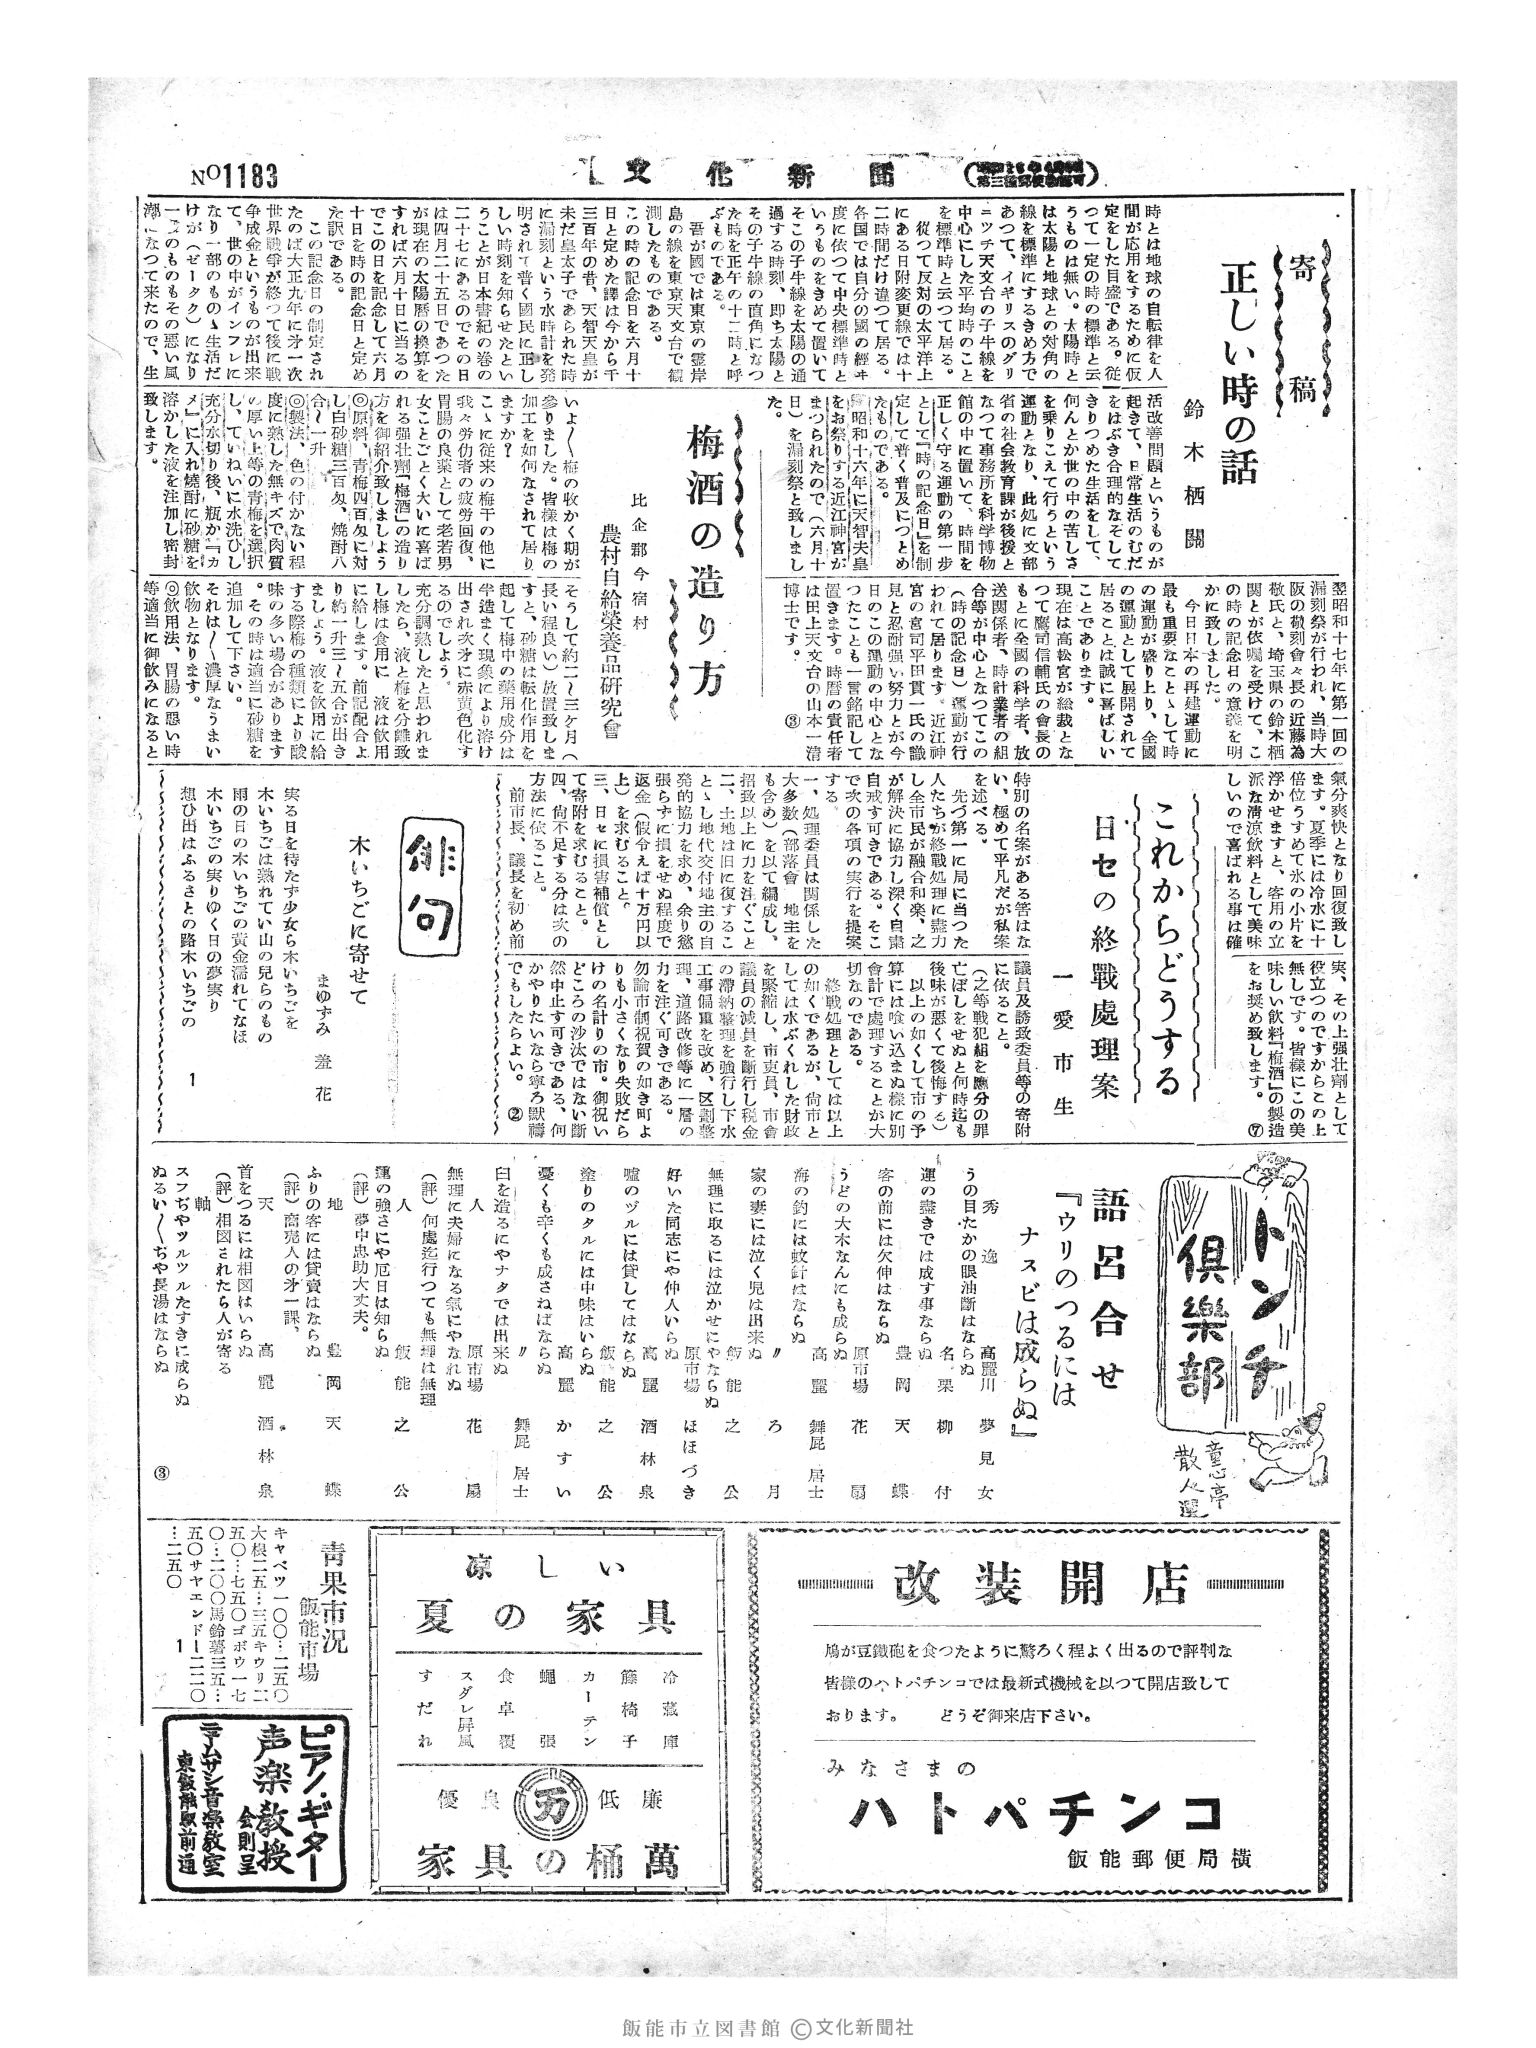 NO1183
文化新聞
寄稿
正しい時の話
鈴木栖闘
時とは地球の自転律を人
間が応用をするために仮
定をした目盛である。従
つて一定の時の標準と云
うものは無い。太陽時と
は太陽と地球との対角の
線を標準にするきめ方で
あつて、イギリスのグリ
ニツチ天文台の子牛線を
中心にした平均時のこと
を標準時と云つて居る。
従つて反対の太平洋上
にある日附変更線では十
二時間だけ違つて居る。
各国では自分の國の經キ
度に依つて中央標準時と
いうものをきめて置いて
そこの子牛線を太陽の通
過する時刻、即ち太陽と
その子牛線の直角になつ
た時を正午の十二時と呼
ぶものである。
吾が國では東京の霊岸
島の線を東京天文台で観
測したものである。
この時の記念日を六月十
日と定めた譯は今から千
三百年の昔、天智天皇が
未だ皇太子であられた時
に漏刻という水時計を発
明されて普く國民に正し
しい時刻を知らせたとい
うことが日本書紀の巻の
二十七にあるのでその日
は四月二十五日であつた
が現在の太陽暦の換算を
すれば六月十日に当るの
でこの日を記念して六月
十日を時の記念日と定め
た訳である。
この記念日の制定され
たのは大正九年に才一次
世界戦争が終つて後に戦
争成金というものが出来
て、世の中がインフレに
なり一部のものゝ生活だ
けが（ゼータク）になり
一般のものもその悪い風
潮になつて来たので、生
活改善問題というものが
起きて、日常生活のむだ
をはぶき合理的なそして
きりつめた生活をして、
何んとか世の中の苦しさ
を乗りこえて行うという
運動となり、此処に文部
省の社会教育課が後援と
なつて事務所を科学博物
館の中に置いて、時間を
正しく守る運動の第一步
として『時の記念日』を制
定して普く普及につとめ
たものである。
昭和十六年に天智夫皇
をお祭りする近江神宮が
まつられたので（六月十
日）を漏刻祭と致しまし
た。
翌昭和十七年に第一回の
漏刻祭が行われ、当時大
阪の敬刻會々長の近藤為
敬氏と、埼玉県の鈴木栖
闘とが依嘱を受けて、こ
の時の記念日の意義を明
かに致しました。
今日日本の再建運動に
最も重要なことゝして時
の運動が盛り上り、全國
の運動として展開されて
居ることは誠に喜ばしい
ことであります。
現在は高松宮が総裁とな
つて鷹司信輔氏の會長の
もとに全國の科学者、放
送関係者、時計業者の組
合等が中心となつてこの
（時の記念日）運動が行
われて居ります。近江神
宮の宮司平田貫一氏の識
見と忍耐強い努力とが今
日のこの運動の中心とな
つたことも一言銘記して
置きます。時暦の責任者
は田上天文台の山本一清
博士です。　③
梅酒の造り方
比企郡今宿村
農村自給榮養品研究會
いよ〱梅の收かく期が
参りました。皆様は梅の
加工を如何なされて居り
ますか？
こゝに従来の梅干の他に
我々労仂者の疲労回復、
胃腸の良薬として老若男
女ことごとく大いに喜ば
れる强壮劑「梅酒」の造り
方を御紹介致しましよう
◎原料、青梅四百匁に対
し白砂糖三百匁、焼酎八
合〜一升
◎製法、色の付かない程
度に熟した無キズで肉質
の厚い上等の青梅を選択
し、ていねいに水洗ひし
充分水切り後、瓶か『カ
メ』に入れ焼酎に砂糖を
溶かした液を注加し密封
致します。
そうして約二〜三ヶ月（
長い程良い）放置致しま
すと、砂糖は転化作用を
起して梅中の薬用成分は
半造まく現象により溶け
出され次才に赤黄色化す
るのでしよう。
充分調熟したと思われま
したら、液と梅を分離致
し梅は食用に　液は飲用
に給します。前記配合よ
り約一升三〜五合が出き
ましよう。液を飲用に給
する際梅の種類により酸
味の多い場合があります
。その時は適当に砂糖を
追加して下さい。
それは〱濃厚なうまい
飲物となります。
◎飲用法、胃腸の悪い時
等適当に御飲みになると
氣分爽快となり回復致し
ます。夏季には冷水に十
倍位うすめて氷の小片を
浮かせますと、客用の立
派な清涼飲料として美味
しいので喜ばれる事は確
実、その上强壮劑として
役立つのですからこの上
無しです。皆様にこの美
味しい飲料『梅酒』の製造
をお奨め致します。　⑦
これからどうする
日セの終戰處理案
一愛市生
特別の名案がある筈はな
い、極めて平凡だが私案
を述べる。
先づ第一に局に当つた
人たちが終戰処理に盡力
し全市民が融合和楽、之
が解決に協力し深く自粛
自戒す可きである。そこ
で次の各項の実行を提案
する。
一、処理委員は関係した
大多数（部落會　地主を
も含め）を以て編成し、
招致以上に力を注ぐこと
二、土地は旧に復するこ
とゝし地代交付地主の自
発的協力を求め、余り慾
張らずに損をせぬ程度で
返金（假令えば十万円以
上）を求むること、
三、日セに損害補償とし
て寄附を求むること。
四、尚不足する分は次の
方法に依ること。
前市長、議長を初め前
議員及誘致委員等の寄附
に依ること。
（之等戦犯組を應分の罪
亡ぼしをせぬと何時迄も
後味が悪くて後悔する）
之以上の如くして市の予
算には喰い込まぬ様に別
會計で處理することが大
切なのである。
終戦処理としては以上
の如くであるが、尚市と
しては水ぶくれした財政
を緊縮し、市吏員、市會
議員の減員を斷行し税金
の滞納整理を強行し下水
工事偏重を改め、区劃整
理、道路改修等に一層の
力を注ぐ可きである。
勿論市制祝賀の如き町よ
りも小さくなり失敗だら
けの名計りの市。御祝い
どころの沙汰ではない斷
然中止す可きである、何
かやりたいなら寧ろ默禱
でもしたらよい。　②
俳句
木いちごに寄せて
まゆずみ羞花
実る日を待たず少女ら木いちごを
木いちごは熟れてい山の兒らのもの
雨の日の木いちごの黄金濡れてなほ
木いちごの実りゆく日の夢実り
想ひ出はふるさとの路木いちごの　1
トンチ俱樂部
童心亭散人選
語呂合せ
『ウリのつるには
ナスビは成らぬ』
秀逸
うの目たかの眼油斷はならぬ　高麗川　夢見女
運の盡きでは成す事ならぬ　名栗　柳付
客の前には欠伸はならぬ　豊岡　天蝶
うどの大木なんにも成らぬ　原市場　花扇
海の釣には蚊針はならぬ　高麗　舞屁居士
家の妻には泣く児は出来ぬ　〃　ろ月
無理に取るには泣かせにやならぬ　飯能　之公
好いた同志にや仲人いらぬ　原市場　ほほづき
嘘のヅルには貸してはならぬ　高麗　酒林泉
塗りのタルには中味はいらぬ　飯能　之公
憂くも辛くも成さねばならぬ　高麗　かすい
臼を造るにやナタでは出来ぬ　〃　舞屁居士
人
無理に夫婦になる氣にやなれぬ　原市場　花扇
（評）何處迄行つても無理は無理
人
運の強さにや厄日は知らぬ　飯能　之公
（評）夢中忠助大丈夫。
地
ふりの客には貸賣はならぬ　豊岡　天蝶
（評）商売人の才一課、
天
首をつるには相図はいらぬ　高麗　酒林泉
（評）相図されたら人が寄る
軸
スフぢやツルツルたすきに成らぬ
ぬるい〱ぢや長湯はならぬ　③
改装開店
鳩が豆鐵砲を食つたように驚ろく程よく出るので評判な
皆様のハトパチンコでは最新式機械を以つて開店致して
おります。　どうぞ御来店下さい。
みなさまの
ハトパチンコ
飯能郵便局横
凉しい
夏の家具
冷蔵庫
籐椅子
カーテン
蠅張
食卓覆
スダレ屏風
すだれ
優良　万　低廉
家具の桶萬
青果市況
飯能市場
キャベツ一〇〇…二五〇
大根二五…三五キウリ二
五〇…七五〇ゴボウ一七
〇…二〇〇馬鈴薯三五…
五〇サヤエンドー二二〇
…二五〇　1
ピアノ・ギター
声楽教授
会則呈
テームサシ音楽教室
東飯能駅前通
飯能市立図書館 ©文化新聞社